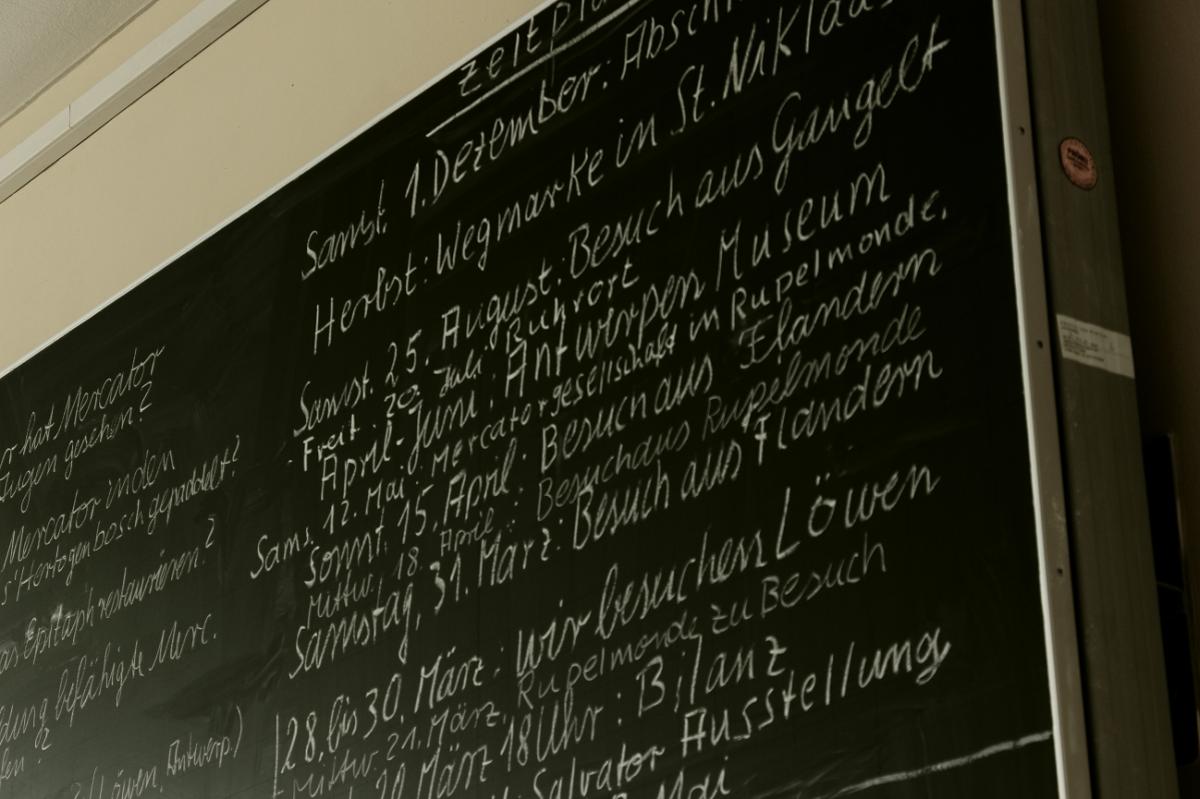 hat Mercator
Augen gesehen?
Mercator in den
s'Hertogenbosch gepaddelt?
as Epitaph restaurieren?
dung befähigte Merc.
fen?
Löwen, Antwerp.)
Zeitpla
Samst. 1. Dezember: Absch
Herbst: Wegmarke in St. Niklaas
Samst. 25. August: Besuch aus Gangelt
Freit. 20. Juli Ruhrort
April-Juni: Antwerpen Museum
Sams. 12. Mai: Mercatorgesellschaft in Rupelmonde,
Sonnt. 15. April: Besuch aus Flandern
Mittw. 18. April: Besuch aus Rupelmonde
Samstag, 31. März: Besuch aus Flandern
28. bis 30. März: wir besuchen Löwen
Mittw. 21. März, Rupelmonde zu Besuch
März 18 Uhr: Bilanz
Salvator Ausstellung
Mai